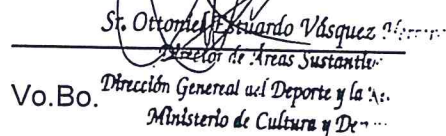 Sr. Ottoniel Estuardo Vásquez
Director de Áreas Sustantiv
Vo.Bo. Dirección General del Deporte y la
Ministerio de Cultura y De